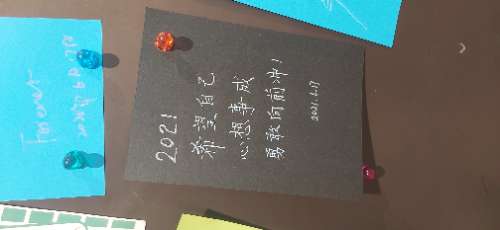 2021
希望自己
心想事成
勇敢向前冲!
2021.6.17
Forever